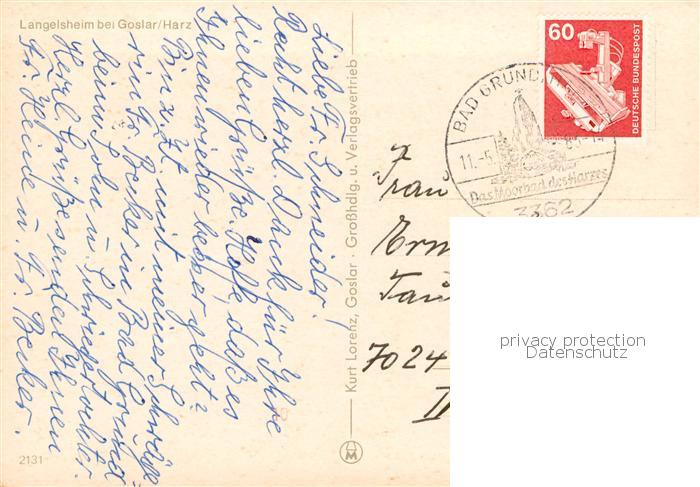 Langelsheim bei Goslar/Harz
Liebe Fr. Schneider!
Recht herzl. Dank für Ihre
lieben Grüße. Hoffe, daß es
Ihnen wieder besser geht?
Bin zt. mit meiner Schwäge-
rin Fr. Becker in Bad Grund
beim Sohn u. Schwiegertochter.
Herzl. Grüße senden Ihnen
Fr. Heine u. Fr. Becker.
2131
Kurt Lorenz, Goslar · Großhdlg. u. Verlagsvertrieb
60
DEUTSCHE BUNDESPOST
BAD GRUND
11.-5.
Das Moorbad des Harzes
3362
Frau
Ern
Tau
7024
II
privacy protection
Datenschutz